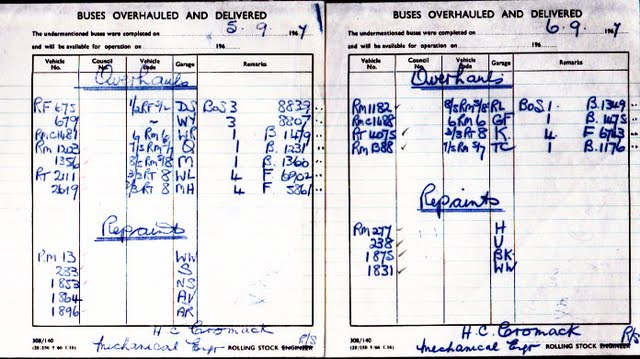 BUSES OVERHAULED AND DELIVERED
The undermentioned buses were completed on 5.9. 1967
and will be available for operation on 196
Vehicle No. Council No. Vehicle Code Garage Remarks
Overhauls
RF 675 DS BoS 3 8839
679 ~ WY 3 8807
RMC1481 6 RM 6 WR 1 B 1479
RM 1203 Q 1 B.1231
1356 M 1 B.1360
RT 2111 WL 4 F 6902
2619 MH 4 F 5861
Repaints
RM 13 WW
283 S
1853 NS
1864 AV
1896 AR
H.C. Cromack
308/140 Mechanical Engr ROLLING STOCK ENGINEER R/S
BUSES OVERHAULED AND DELIVERED
The undermentioned buses were completed on 6.9. 1967
and will be available for operation on 196
Vehicle No. Council No. Vehicle Code Garage Remarks
Overhauls
RM1182 RL BoS 1. B.1349
RMC1488 6 RM 6 GF 1 B.1475
RT 4075 K. 4 F
RM 1388 TC 1 B.1176
Repaints
RM 277 H
238 U
1875 BK
1831 WW
H.C. Cromack
308/140 Mechanical Engr ROLLING STOCK ENGINEER R/S